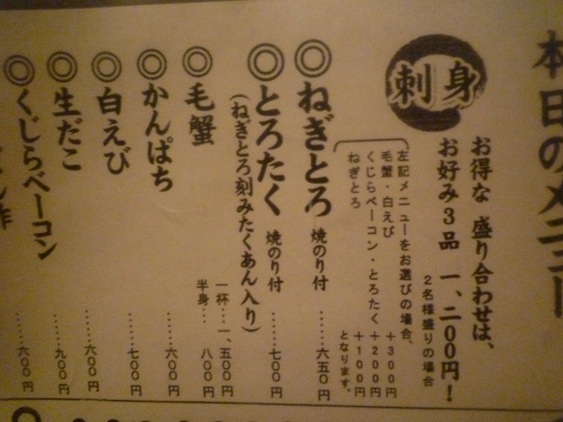 本日のメニュー
刺身
お得な 盛り合わせは、
お好み3品 一、二00円!
2名様盛りの場合
左記メニューをお選びの場合、
毛蟹・白えび +300円
くじらベーコン・とろたく +200円
ねぎとろ +100円
となります。
◎ねぎとろ 焼のり付 ……六五0円
◎とろたく 焼のり付 ……七00円
(ねぎとろ刻みたくあん入り)
◎毛蟹 一杯…一、五00円
半身… 八00円
◎かんぱち ……六00円
◎白えび ……七00円
◎生だこ ……六00円
◎くじらベーコン ……九00円
……六00円